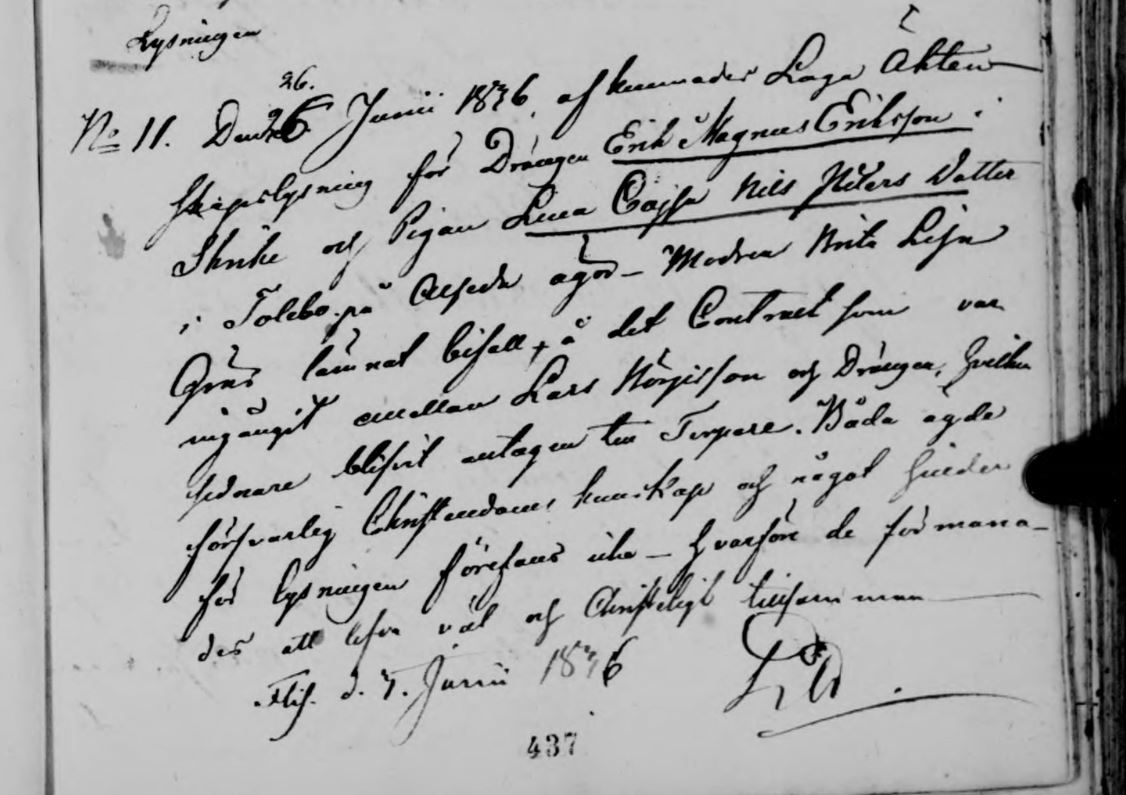 Lysningen
26.
No 11. Den 26 Junii 1836, afkunnades Laga Ächten-
skapslysning för Drängen Erik Magnus Eriksson i
Skrike och Pigan Lena Cajsa Nils Peters Dotter
i Tolebo på Alseda ägor – Modren Brita Lisa
lämnat bifall, å det Contract som var
ingångit emellan Lars och Drängen, hvilken
sednare blifvit antagen till Torpare. Båda ägde
försvarlig Christendoms kunskap och något hinder
för lysningen förefans icke – hvarföre de förmana-
des att lefva väl och Christeligt tillsamman
d. 7. Junii 1836
437